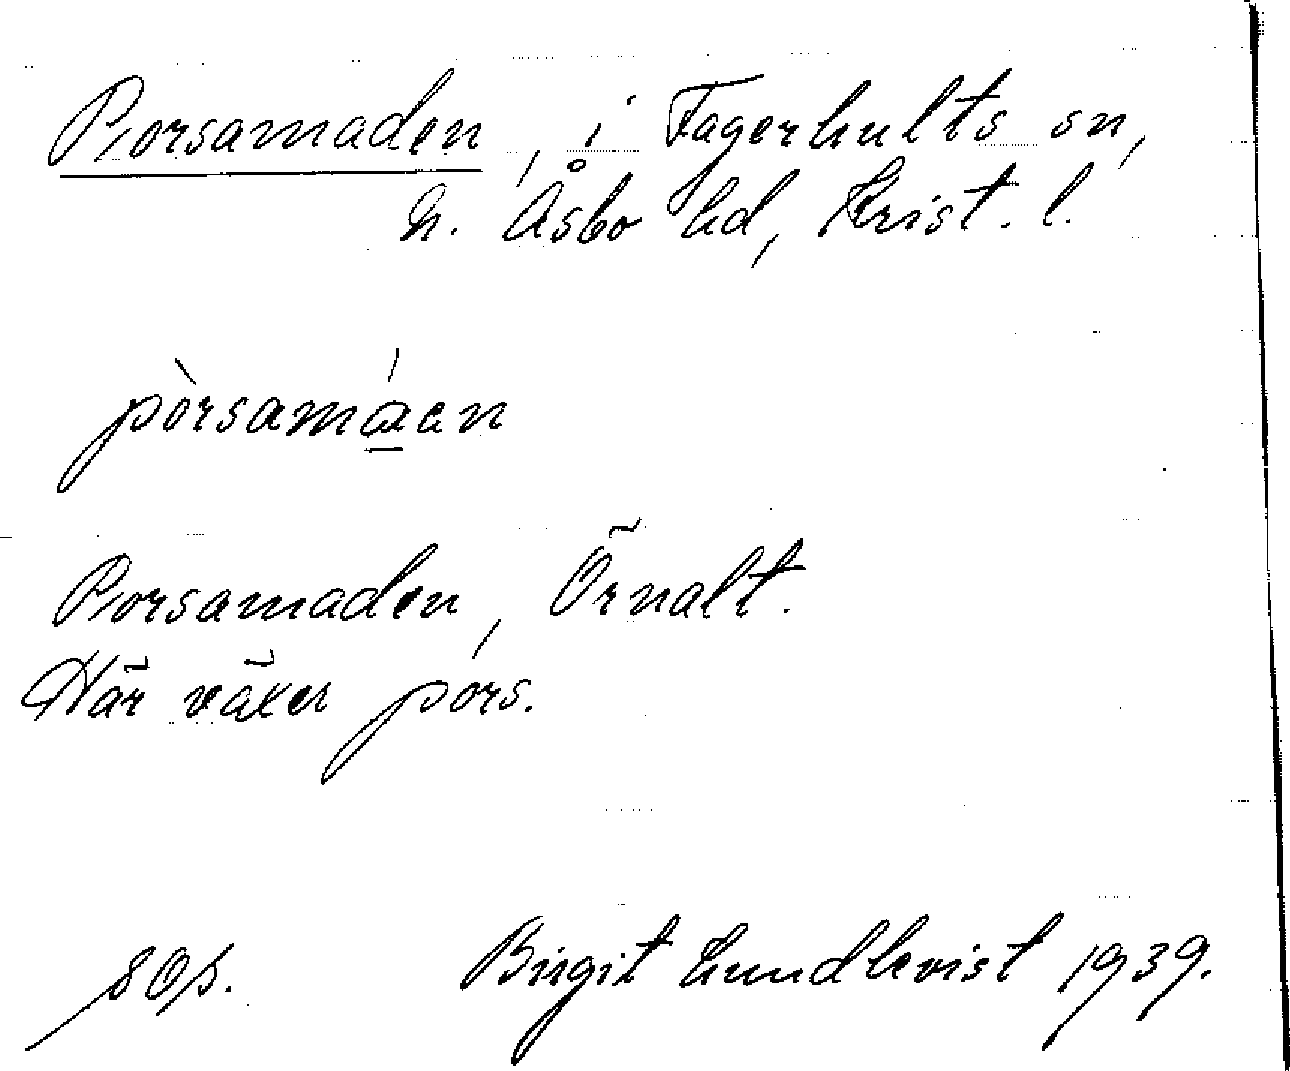 Porsamaden, i Fagerhults sn,
N. Åsbo hd, Krist. l.
pòrsamáen
Porsamaden, Örnalt.
Här växer pors.
Birgit Lundkvist 1939.